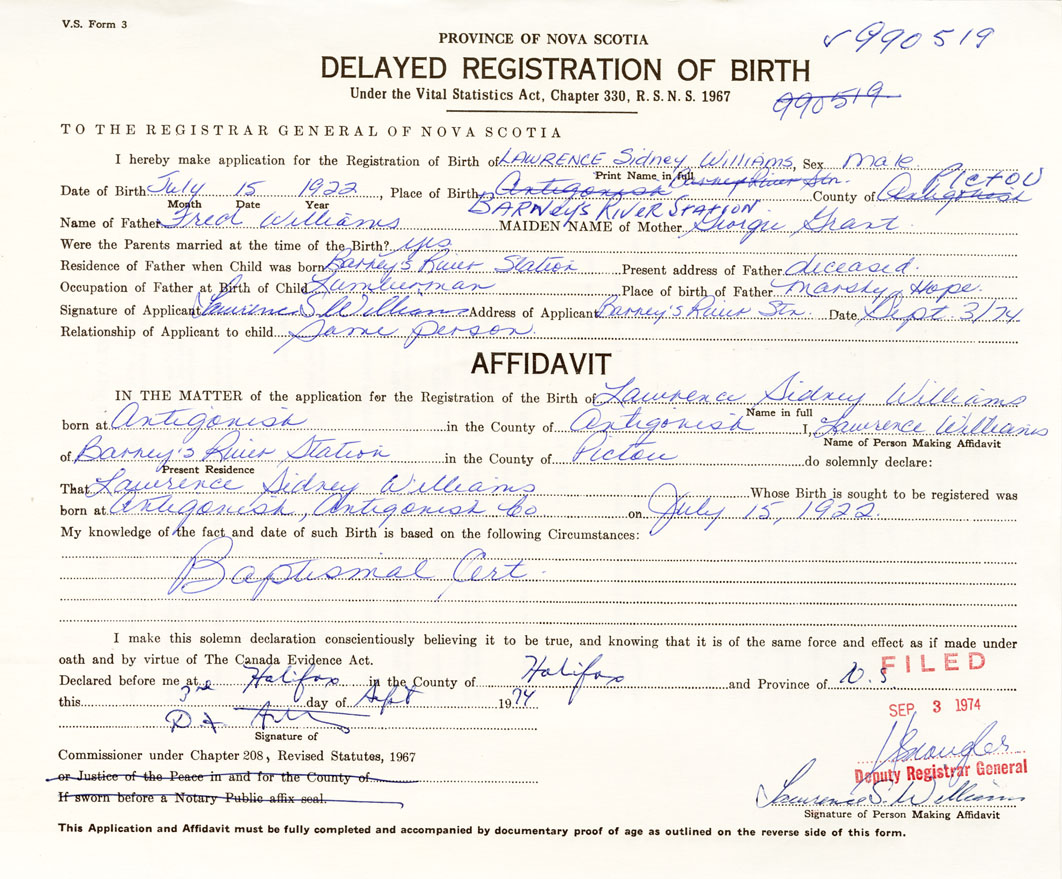 V.S. Form 3
✓990519
PROVINCE OF NOVA SCOTIA
DELAYED REGISTRATION OF BIRTH
Under the Vital Statistics Act, Chapter 330, R. S. N. S. 1967
990519
TO THE REGISTRAR GENERAL OF NOVA SCOTIA
I hereby make application for the Registration of Birth of LAWRENCE Sidney WILLIAMS, Sex Male
Print Name in full
Date of Birth July 15 1922, Place of Birth Antigonish Barney's River Stn. County of Antigonish Pictou
Month Date Year
BARNEY'S RIVER STATION
Name of Father Fred Williams MAIDEN NAME of Mother Georgie Grant
Were the Parents married at the time of the Birth? yes
Residence of Father when Child was born Barney's River Station Present address of Father deceased.
Occupation of Father at Birth of Child Lumberman Place of birth of Father Marshy Hope.
Signature of Applicant Lawrence S. Williams Address of Applicant Barney's River Stn. Date Sept. 3/74
Relationship of Applicant to child Same person.
AFFIDAVIT
IN THE MATTER of the application for the Registration of the Birth of Lawrence Sidney Williams
Name in full
born at Antigonish in the County of Antigonish I, Lawrence Williams
Name of Person Making Affidavit
of Barney's River Station in the County of Pictou do solemnly declare:
Present Residence
That Lawrence Sidney Williams Whose Birth is sought to be registered was
born at Antigonish, Antigonish Co on July 15, 1922.
My knowledge of the fact and date of such Birth is based on the following Circumstances:
Baptismal Cert.
I make this solemn declaration conscientiously believing it to be true, and knowing that it is of the same force and effect as if made under
oath and by virtue of The Canada Evidence Act.
Declared before me at Halifax in the County of Halifax and Province of N.S.
FILED
this 3rd day of Sept 1974
SEP 3 1974
Signature of
Commissioner under Chapter 208, Revised Statutes, 1967
or Justice of the Peace in and for the County of
Deputy Registrar General
If sworn before a Notary Public affix seal.
Lawrence S. Williams
Signature of Person Making Affidavit
This Application and Affidavit must be fully completed and accompanied by documentary proof of age as outlined on the reverse side of this form.